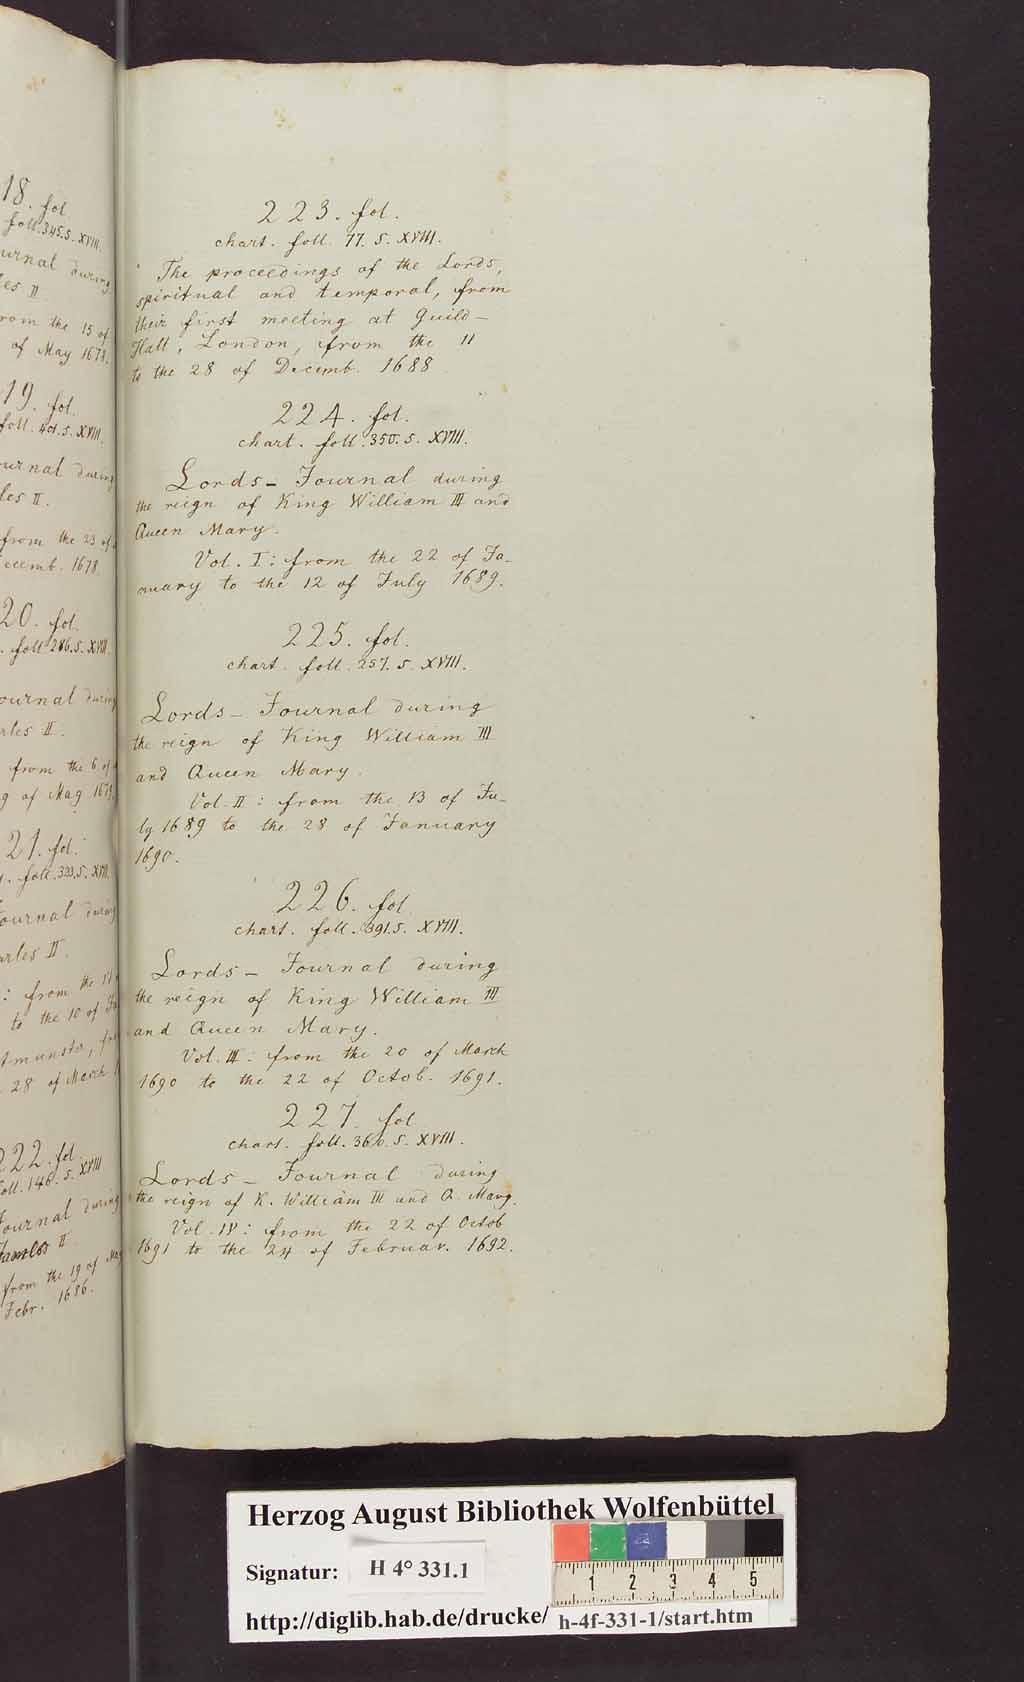 18. fol.
foll. 345. s. XVIII.
urnal during
les II
rom the 15 of
of May 1678.
19. fol.
foll. 401. s. XVIII.
urnal during
les II.
from the 23 of
ecemb. 1678.
20. fol.
. foll. 286. s. XVIII.
ournal during
rles II.
from the 6 of
g of May 1679.
21. fol.
. foll. 323. s. XVIII.
ournal during
arles II.
: from the
to the 10 of
tmunster,
28 of March
222. fol.
foll. 146. s. XVIII
ournal during
II
from the 19 of May
Febr. 1686.
223. fol.
chart. foll. 77. s. XVIII.
The proceedings of the Lords,
spiritual and temporal, from
their first meeting at Guild-
Hall, London, from the 11
to the 28 of Decemb. 1688
224. fol.
chart. foll. 350. s. XVIII.
Lords- Journal during
the reign of King William III and
Queen Mary.
Vol. I: from the 22 of Ja-
nuary to the 12 of July 1689.
225. fol.
chart. foll. 257. s. XVIII.
Lords- Journal during
the reign of King William III
and Queen Mary.
Vol. II: from the 13 of Ju-
ly 1689 to the 28 of January
1690.
226. fol.
chart. foll. 391. s. XVIII.
Lords- Journal during
the reign of King William III
and Queen Mary.
Vol. III: from the 20 of March
1690 to the 22 of Octob. 1691.
227. fol.
chart. foll. 360. s. XVIII.
Lords- Journal during
the reign of K. William III and Q. Mary.
Vol. IV: from the 22 of Octob
1691 to the 24 of Februar. 1692.
Herzog August Bibliothek Wolfenbüttel
Signatur: H 4° 331.1
1 2 3 4 5
http://diglib.hab.de/drucke/ h-4f-331-1/start.htm